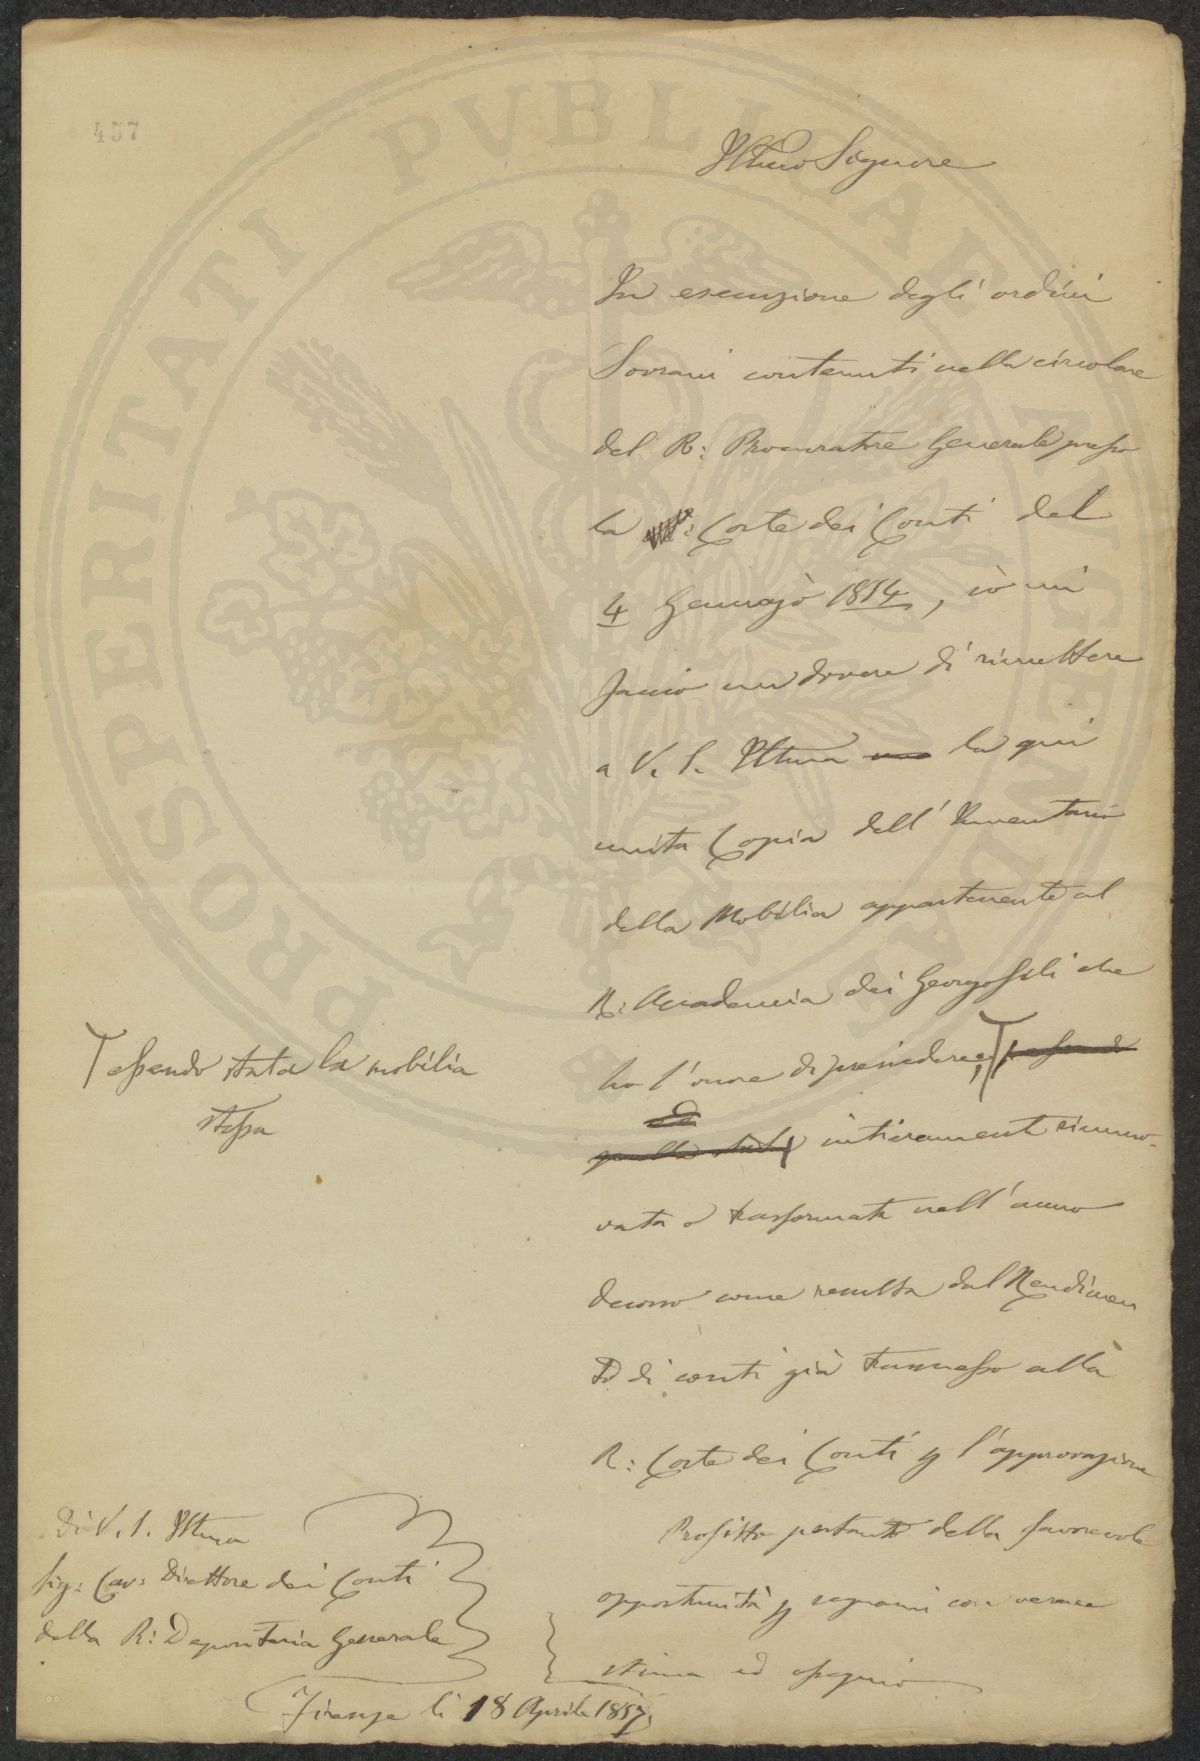 457
Illmo Signore
In esecuzione degli ordini
Sovrani contenuti nella circolare
del R: Procuratore Generale presso
la Corte dei Conti del
4 Gennajo 1854, iò mi
faccio un dovere di rimettere
a V. S. Illma la qui
unita Copia dell'Inventario
della Mobilia appartenente al
R: Accademia dei Georgofili che
ho l'onore di presiedere,
T essendo stata la mobilia
stessa
quella stata intieramente rinnuo-
vata o trasformata nell'anno
decorso come resulta dal Rendimen
to di conti già trasmesso alla
R: Corte dei Conti p l'approvazione
Profitto pertanto della favorevole
opportunità p segnarmi con verace
stima ed ossequio
Di V. S. Illma
Sig: Cav: Direttore dei Conti
della R: Depositeria Generale
Firenze li 18 Aprile 1857.
PROSPERITATI PVBLICAE AVGENDAE